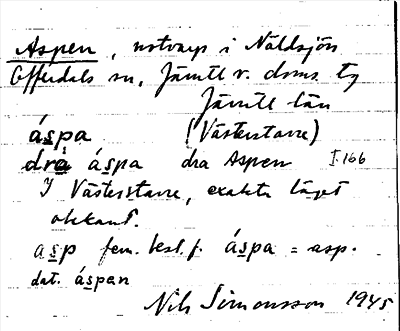 Aspen, notvarp i Näldsjön
Offerdals sn, Jämtl v. doms. tg
Jämtl län
áspa (Västerstavre)
drá áspa dra Aspen I.166
I Västerstavre, exakta läget
okänt.
asp fem. best. f. áspa = asp.
dat. áspen
Nils Simonsson 1945